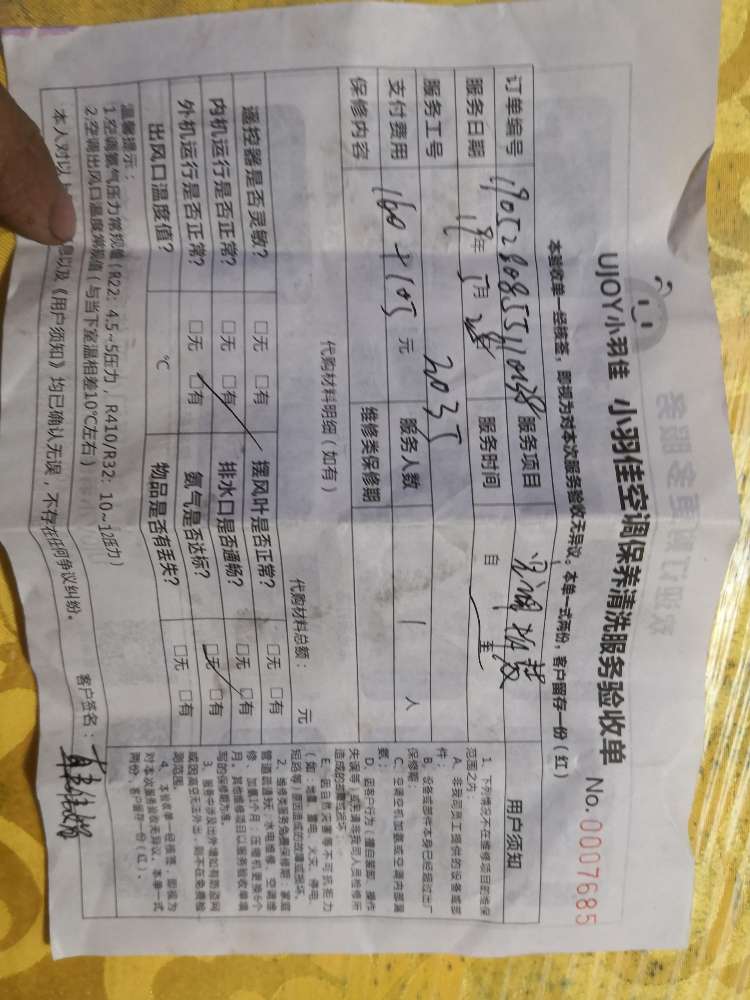 UJOY小羽佳 小羽佳空调保养清洗服务验收单 No. 0007685
本验收单一经核签，即视为对本次服务验收无异议。本单一式两份，客户留存一份（红）
订单编号 服务项目
服务日期 19年 5月 28 服务时间 自 至
服务工号 2035 服务人数 1 人
支付费用 160+105 元 维修类保修期
保修内容
代购材料明细（如有） 代购材料总额： 元
遥控器是否灵敏？ □无 □有 摆风叶是否正常？ □无 □有
内机运行是否正常？ □无 □有 排水口是否通畅？ □无 □有
外机运行是否正常？ □无 □有 氨气是否达标？ □无 □有
出风口温度值？ ℃ 物品是否有丢失？ □无 □有
温馨提示：
1.空调氨气压力常规值（R22：4.5~5压力，R410/R32：10~12压力）
2.空调出风口温度常规值（与当下室温相差10℃左右）
本人对以上 息以及《用户须知》均已确认无误，不存在任何争议纠纷。
客户签名：
用户须知
1、下列情况不在维修项目的维保
范围之内：
A、非我司员工提供的设备或部
B、设备或部件本身已经超过出厂
保修期；
C、空调空机加氨或空调内部漏
氨；
D、因客户行为（擅自装卸、操作
失误等）或聘请非我司人员检修所
造成的故障或损坏；
E、因自然灾害等不可抗拒力
（如：地震、雷电、火灾、停电、
短路等）原因造成的故障或损坏。
2、维修类服务免费保修期：家庭
管道疏通1天；水电维修、空调维
修、加氨1个月；压缩机更换6个
月，其他维修项目以服务验收单填
写的保修期为准。
3、服务中涉及出外墙如有防盗网
或因高空无法外出，则不在免费检
测范围。
4、本验收单一经核签，即视为
对本次服务验收无异议。本单一式
两份，客户留存一份（红）。